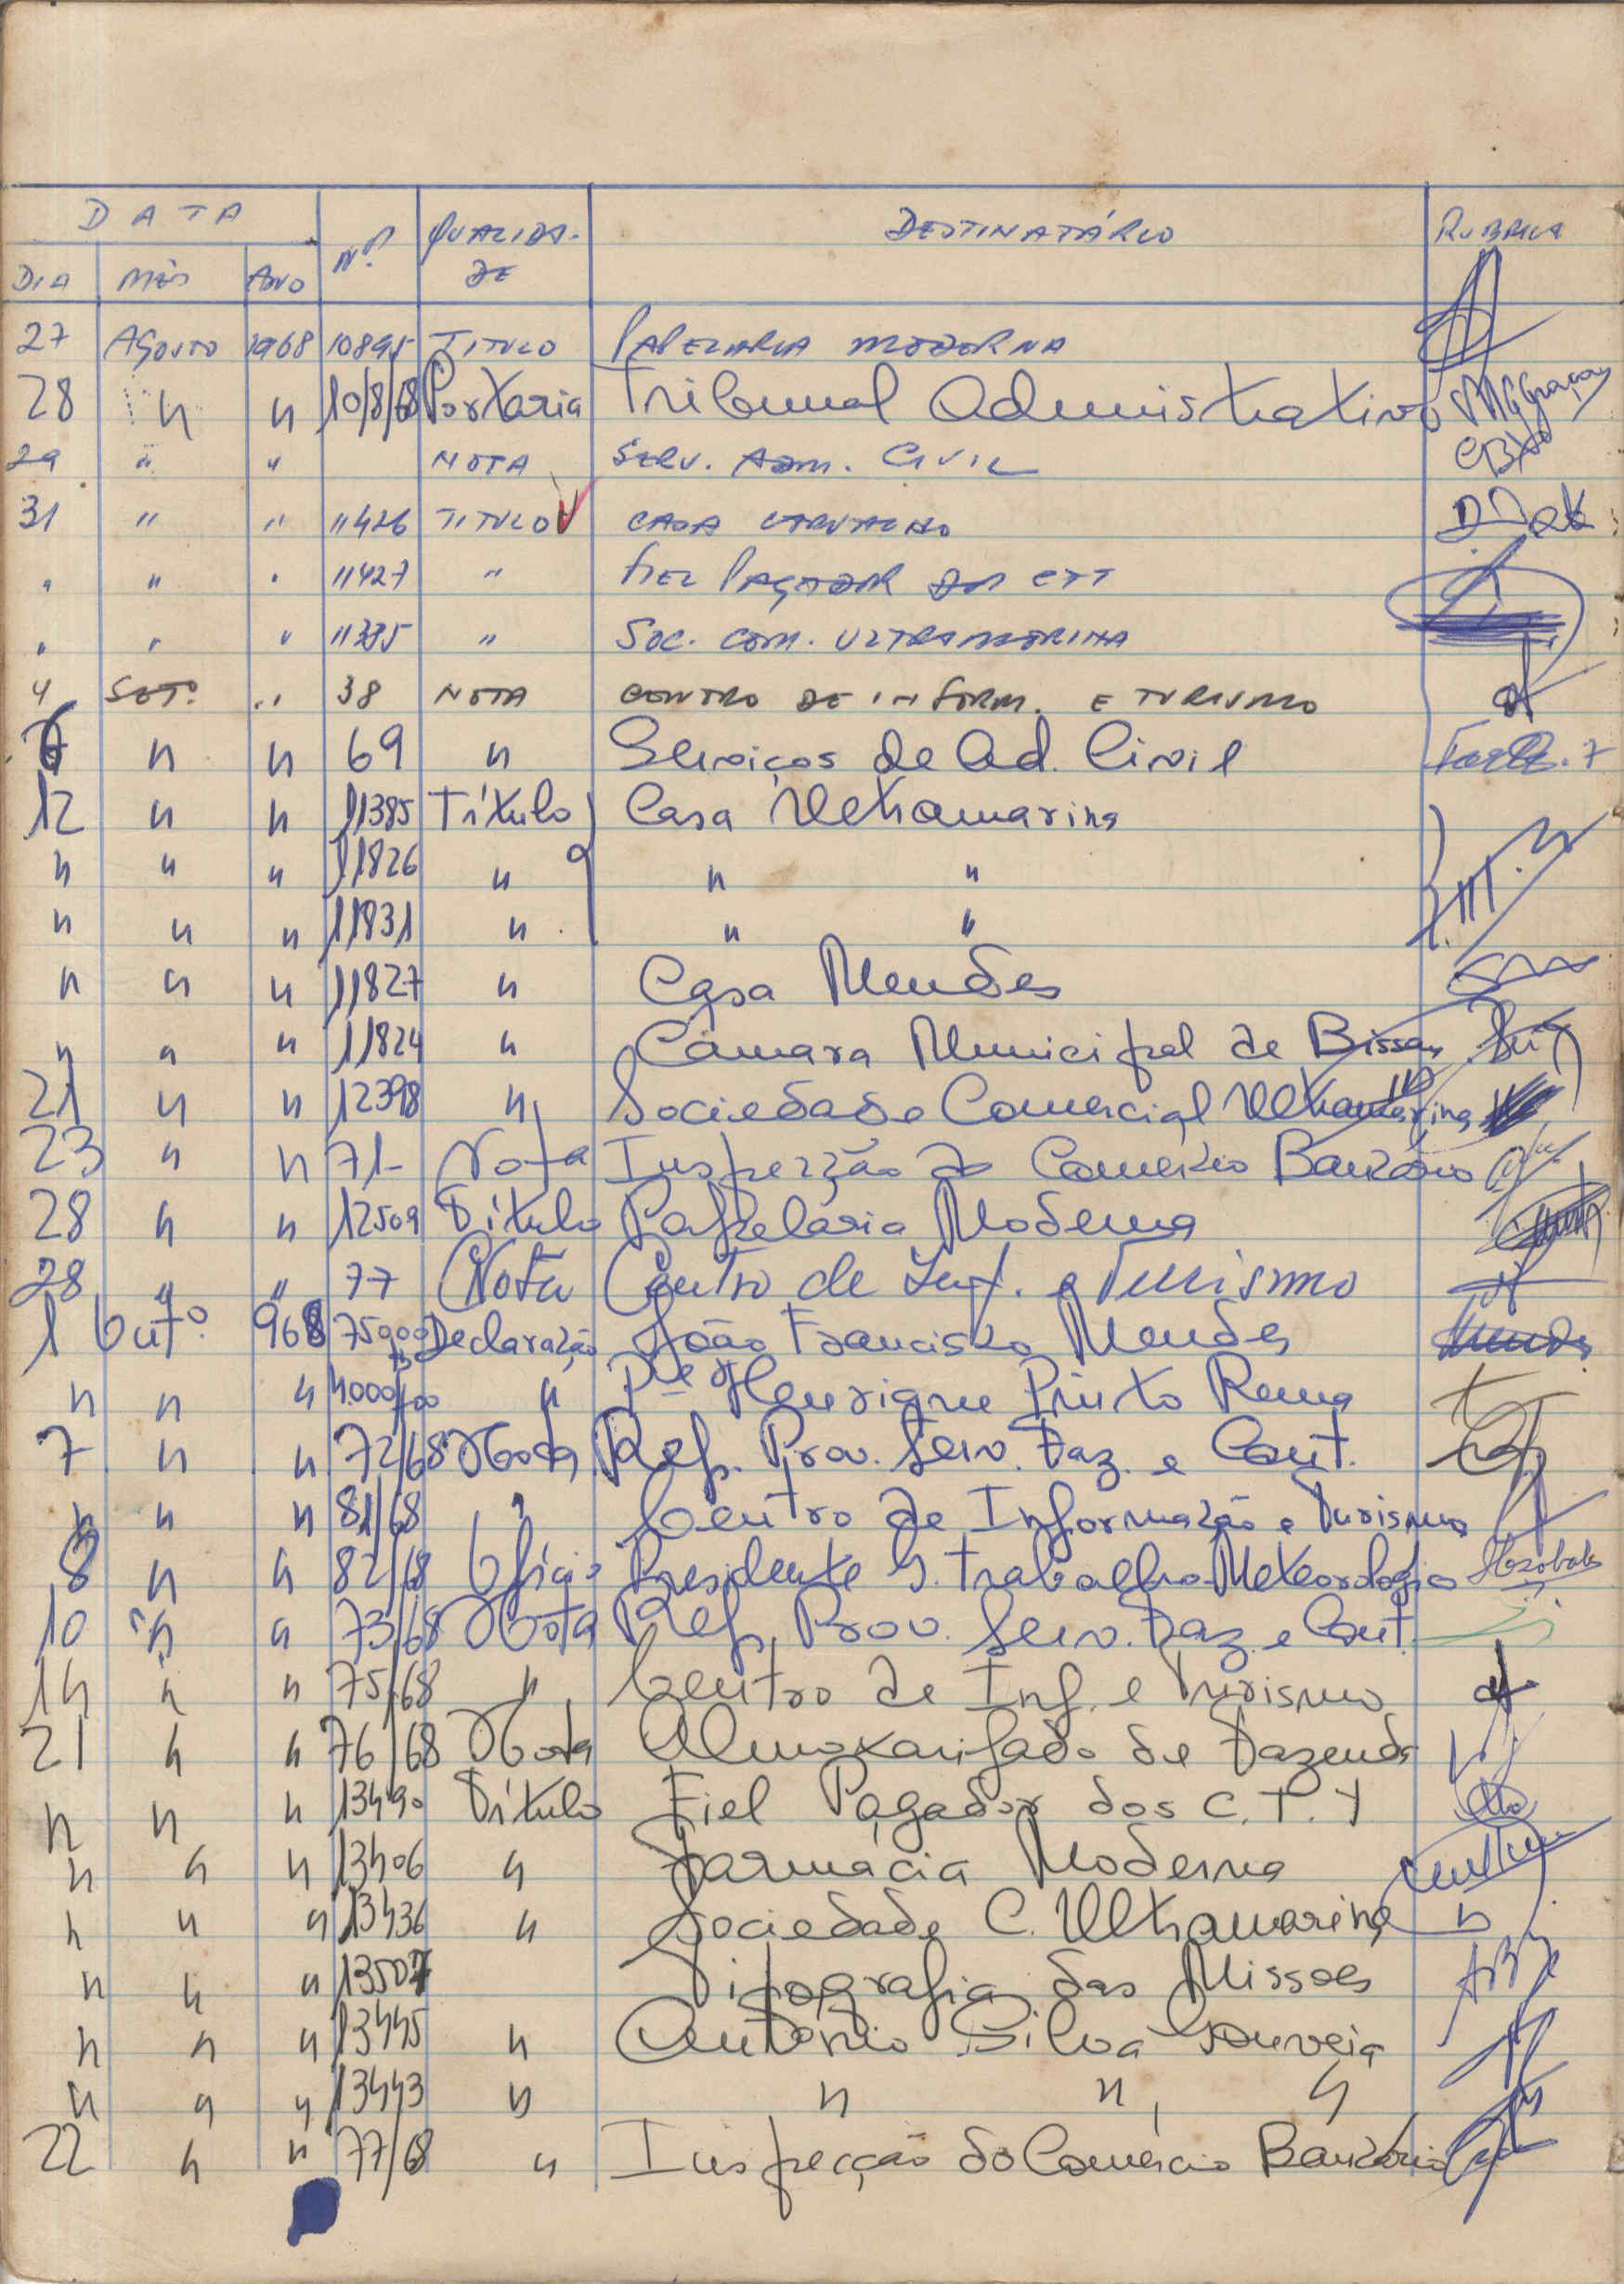 DATA Nº QUALIDA- DESTINATÁRIO RUBRICA
DIA MÊS ANO DE
27 AGOSTO 1968 10895 TITULO PAPELARIA MODERNA
28 " " 10/8/68 Portaria Tribunal Administrativo
29 " " NOTA SERV. ADM. CIVIL
31 " " 11426 TITULO CASA CARVALHO
" " " 11427 " FIEL PAGADOR DOS CTT
" " " 11335 " SOC. COM. ULTRAMARINA
4 SETº " 38 NOTA CENTRO DE INFORM. E TURISMO
7 " " 69 " Serviços de Ad. Civil
12 " " 11385 Título Casa Ultramarina
" " " 11826 " " "
" " " 11831 " " "
" " " 11827 " Casa Mendes
" " " 11824 " Câmara Municipal de Bissau
21 " " 12398 " Sociedade Comercial Ultramarina
23 " " 71- Nota Inspecção do Comércio Bancário
28 " " 12509 Título Papelaria Moderna
28 " " 77 Nota Centro de Inf. e Turismo
1 Outº 968 Declaração João Francisco Mendes
" " " 4.000$00 " Pe Henrique Pinto Rema
7 " " 72/68 Nota Rep. Prov. Serv. Faz. e Cont.
" " " 81/68 " Centro de Informação e Turismo
8 " " 82/68 Ofício Presidente G. Trabalho Meteorologia
10 " " 73/68 Nota Rep. Prov. Serv. Faz. e Cont.
14 " " 75/68 " Centro de Inf. e Turismo
21 " " 76/68 Nota Almoxarifado de Fazenda
" " " 13490 Título Fiel Pagador dos C.T.T
" " " 13406 " Farmácia Moderna
" " " 13436 " Sociedade C. Ultramarina
" " " 13507 Tipografia das Missões
" " " 13445 " António Silva Gouveia
" " " 13443 " " " "
22 " " 77/68 " Inspecção do Comércio Bancário